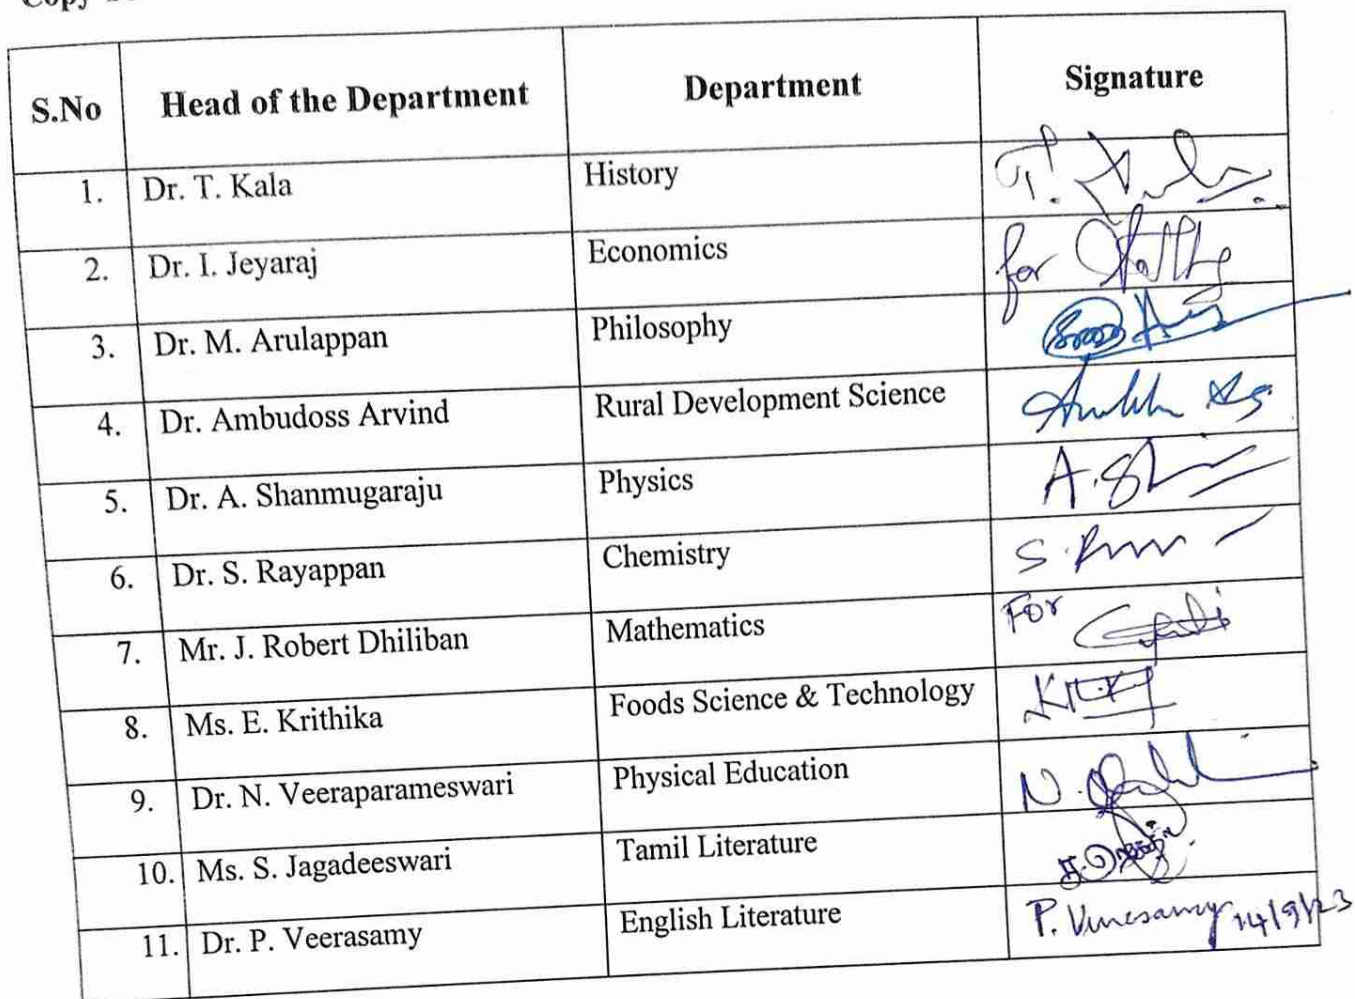 Copy
S.No Head of the Department Department Signature
1. Dr. T. Kala History
2. Dr. I. Jeyaraj Economics for
3. Dr. M. Arulappan Philosophy
4. Dr. Ambudoss Arvind Rural Development Science
5. Dr. A. Shanmugaraju Physics
6. Dr. S. Rayappan Chemistry
7. Mr. J. Robert Dhiliban Mathematics For
8. Ms. E. Krithika Foods Science & Technology
9. Dr. N. Veeraparameswari Physical Education
10. Ms. S. Jagadeeswari Tamil Literature
11. Dr. P. Veerasamy English Literature P. 14/9/23